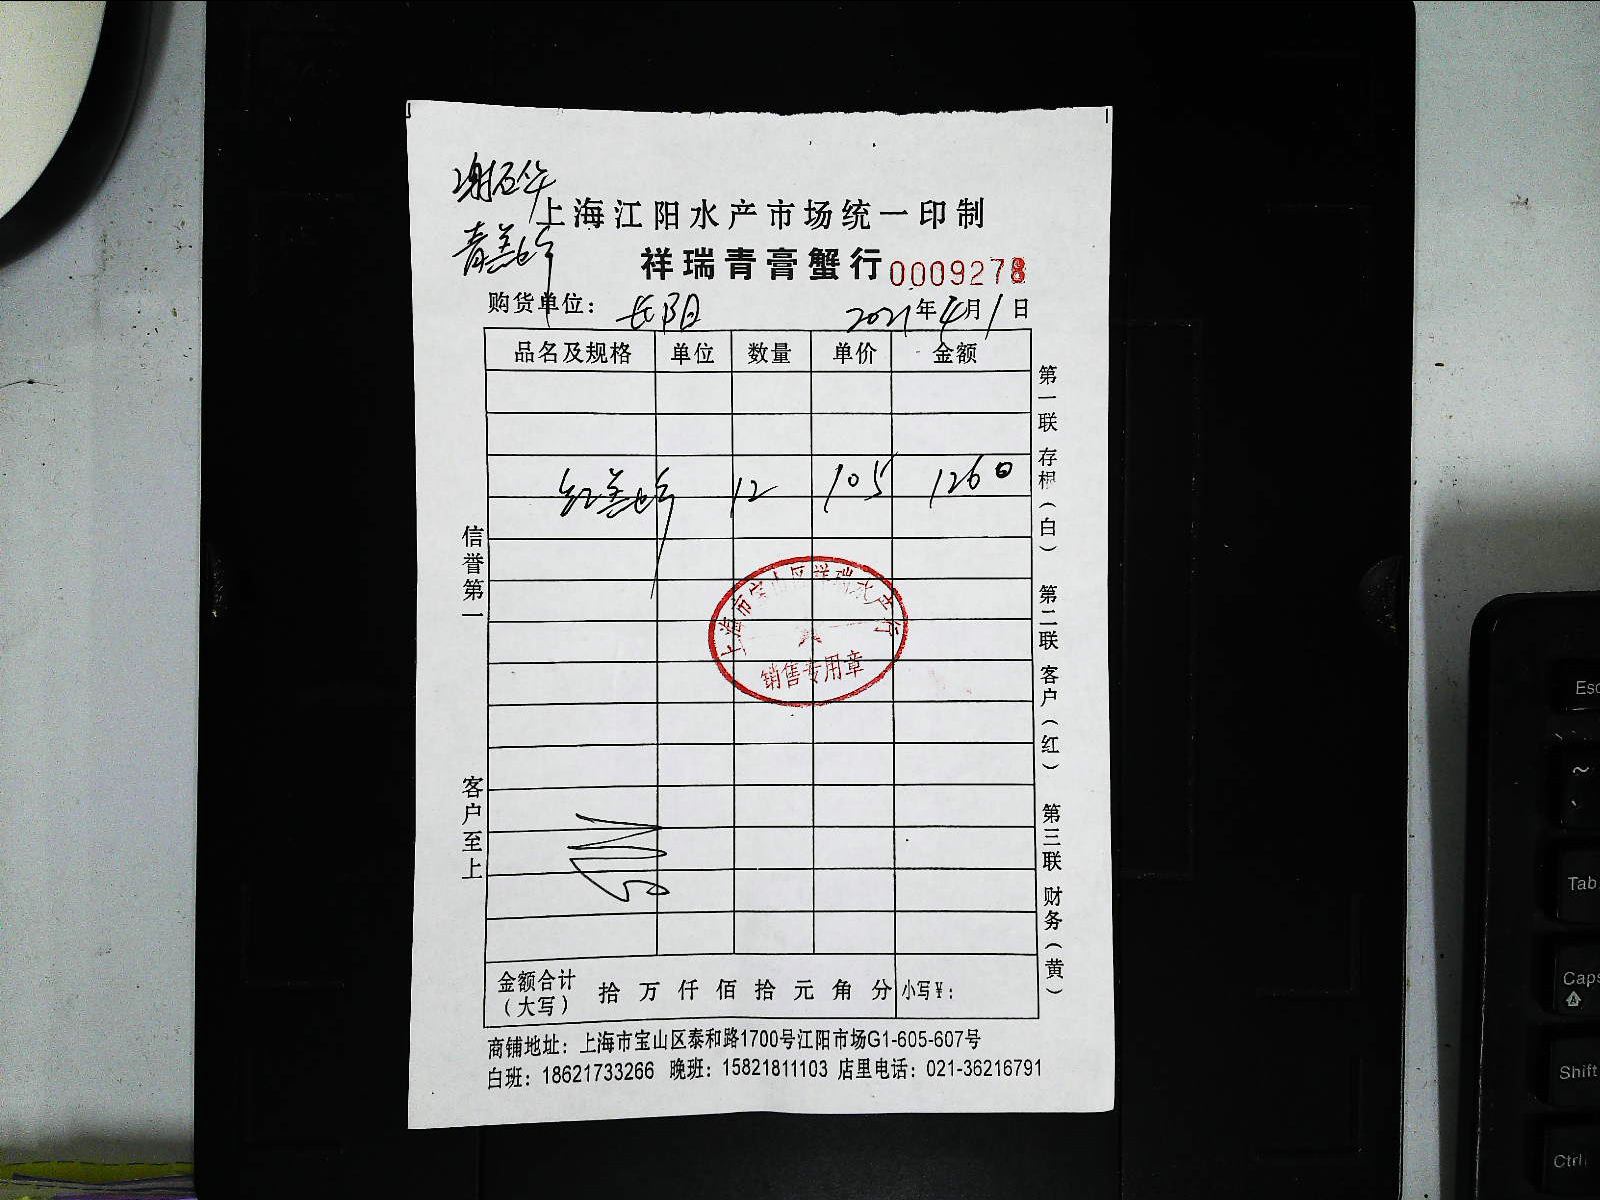 谢石华
上海江阳水产市场统一印制
祥瑞青膏蟹行 0009278
购货单位： 长阳 2021年4月1日
品名及规格 单位 数量 单价 金额
12 105 1260
信誉第一
客户至上
第一联 存根（白） 第二联 客户（红） 第三联 财务（黄）
上海市宝山区祥瑞水产行
销售专用章
金额合计（大写） 拾 万 仟 佰 拾 元 角 分 小写￥：
商铺地址：上海市宝山区泰和路1700号江阳市场G1-605-607号
白班：18621733266 晚班：15821811103 店里电话：021-36216791
Esc
~
Tab
Caps
A
Shift
Ctrl